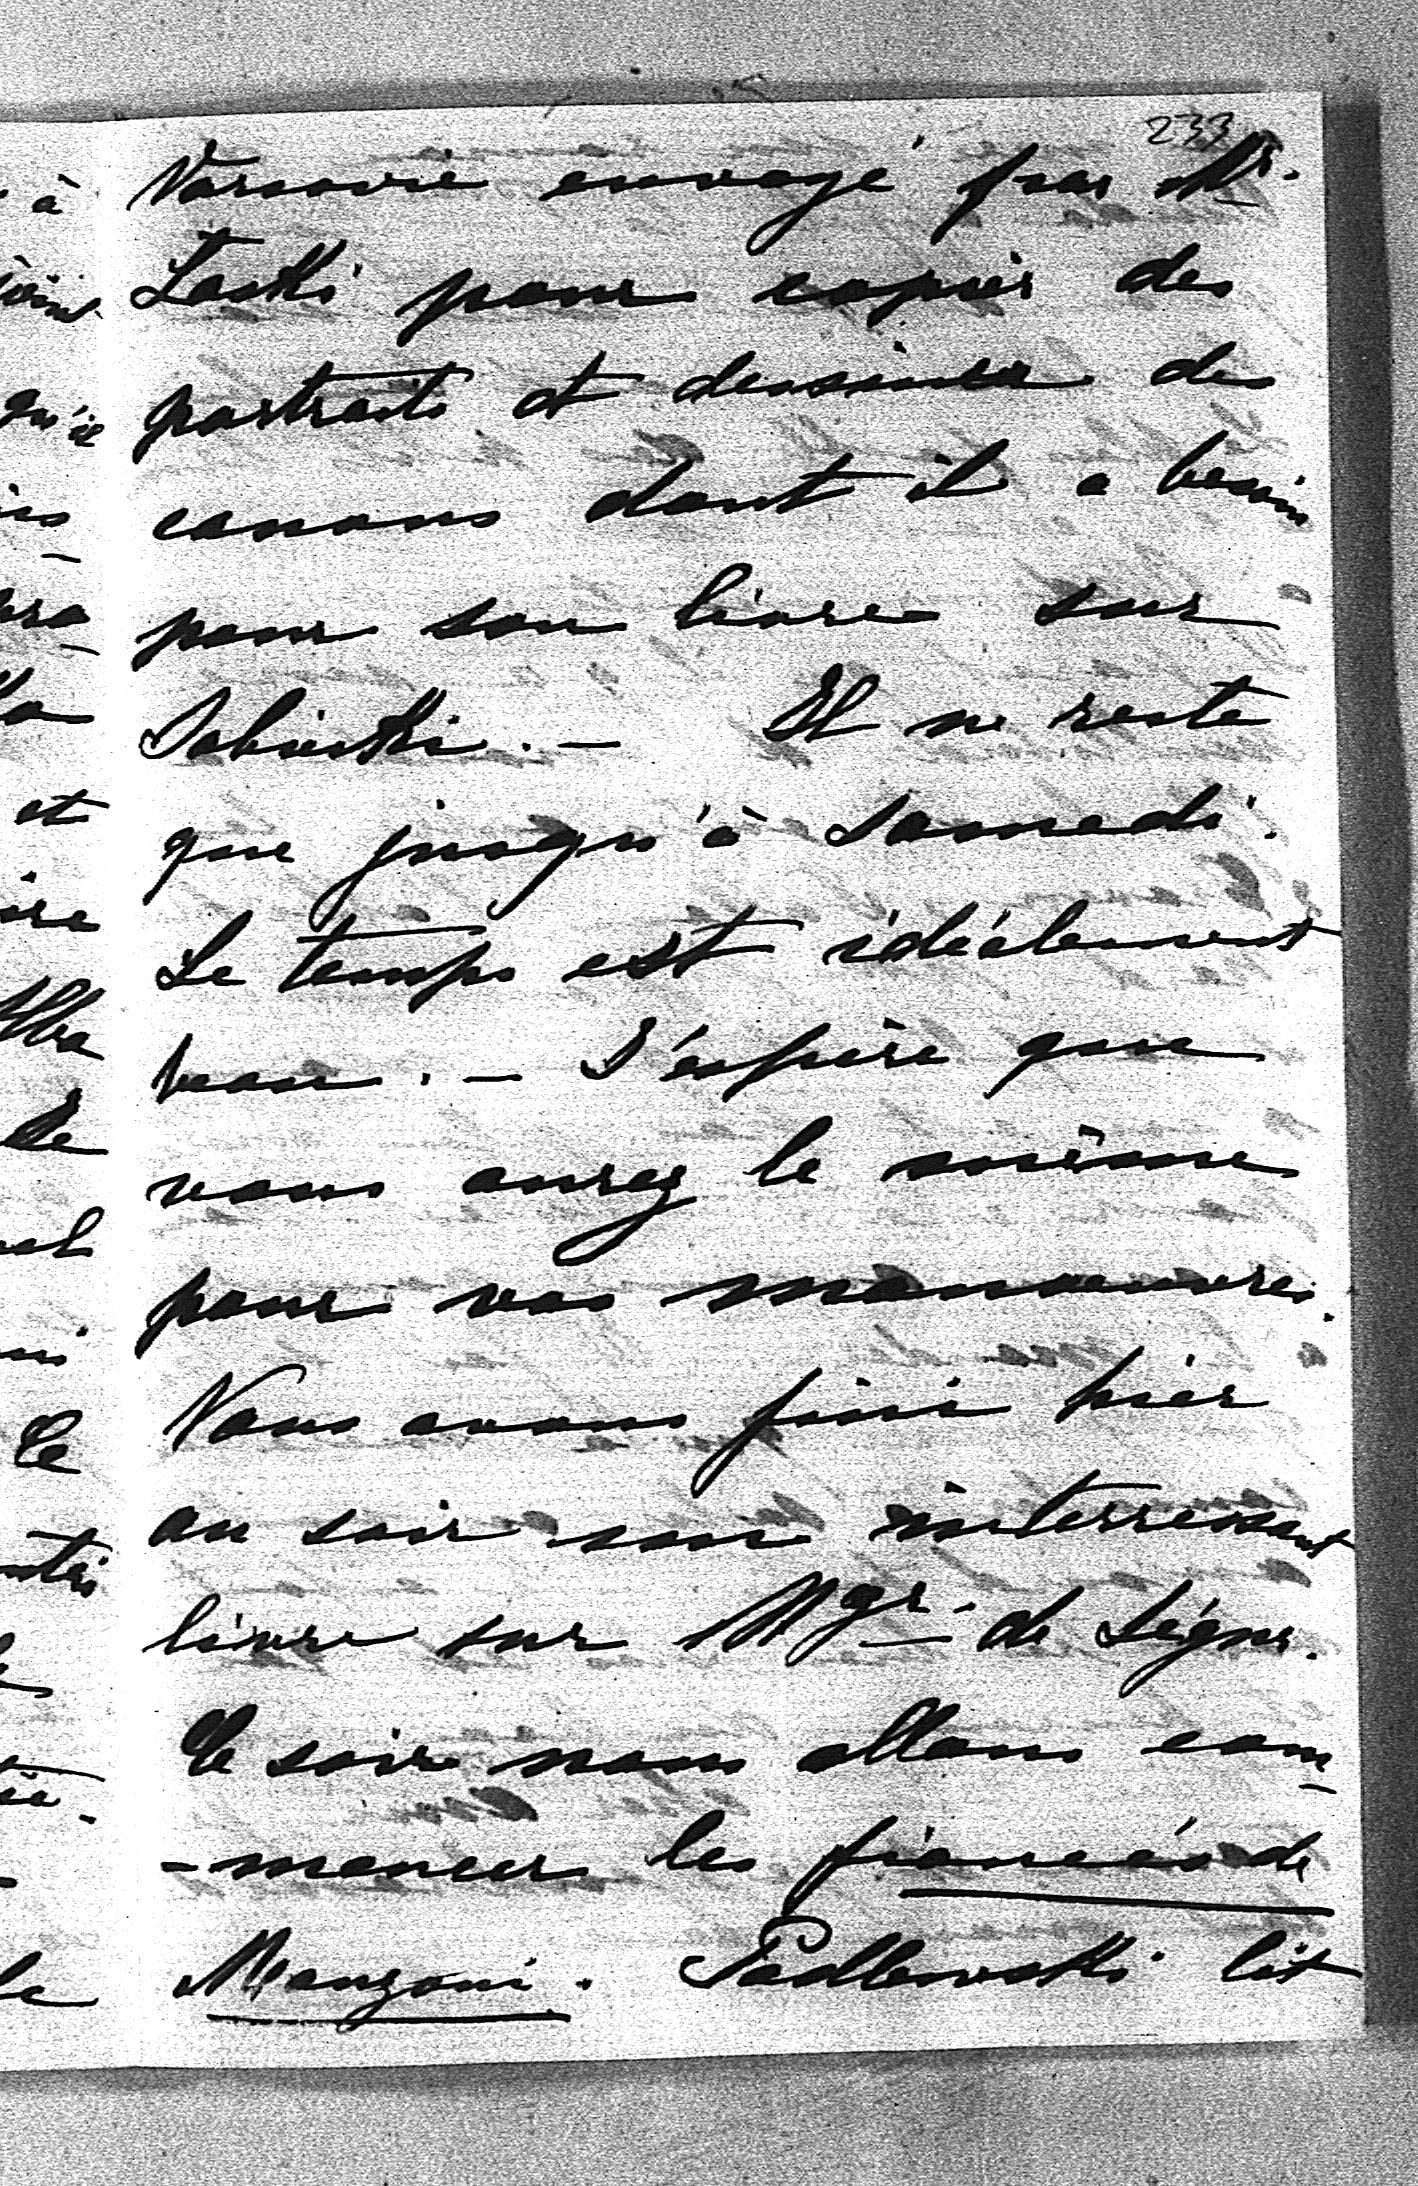 233
Varsovie envoyé par Mr.
Laski pour copier des
portraits et dessiner des
canons dont il a besoin
pour son livre sur
Sobieski. — Il ne reste
que jusqu'à Samedi.
Le temps est idéalement
beau. — J'espère que
vous aurez le même
pour vos manœuvres.
Nous avons fini hier
au soir un interressant
livre sur Mgr. de Ségur.
Ce soir nous allons com-
-mencer les fiancés de
Manzoni. Padlewski lit